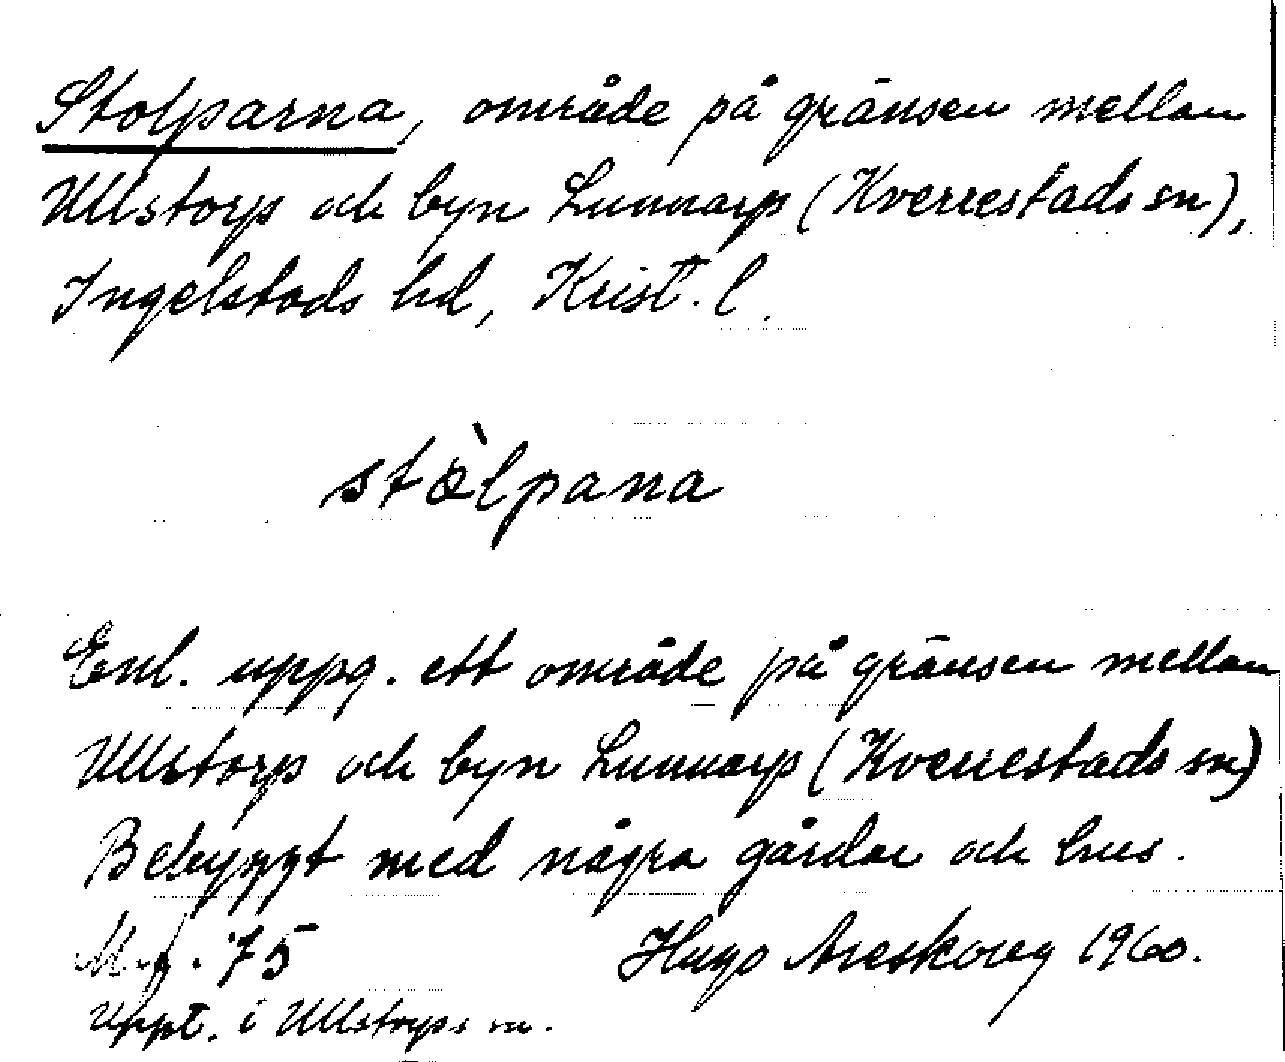 Stolparna, område på gränsen mellan
Ullstorp och byn Lunnarp (Kverrestads sn),
Ingelstads hd, Krist. l.
stòlpana
Enl. uppg. ett område på gränsen mellan
Ullstorp och byn Lunnarp (Kverrestads sn)
Bebyggt med några gårdar och hus.
M.g. 75 Hugo Areskoug 1960.
Uppt. i Ullstorps sn.